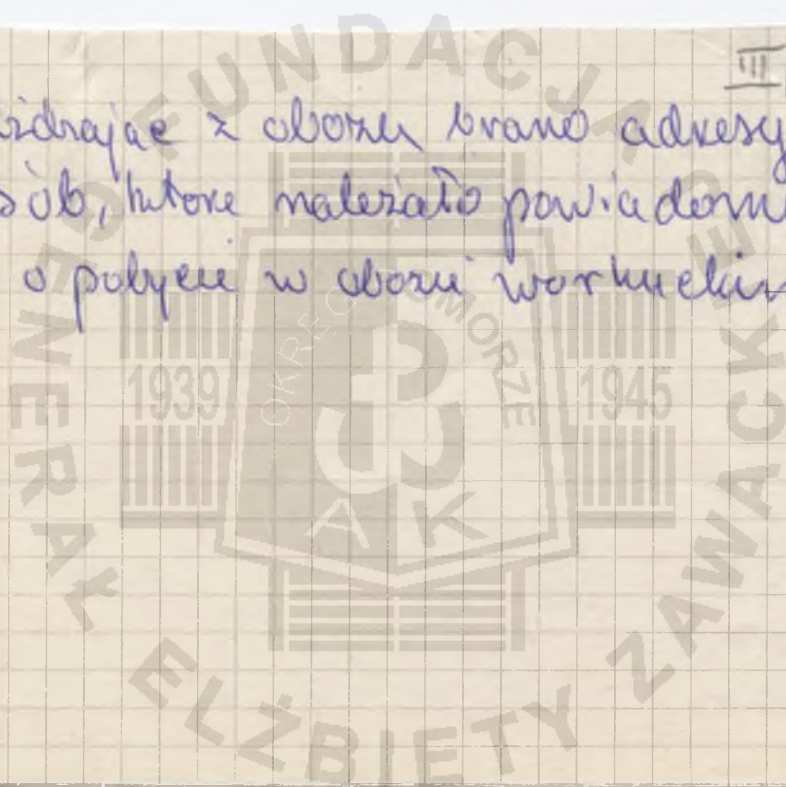 III
żdżając z obozu brano adresy
sób, które należało powiadom
o pobycie w obozie workuckim
FUNDACJA GENERAŁ ELŻBIETY ZAWACKIEJ
OKRĘG POMORZE
1939
1945
AK